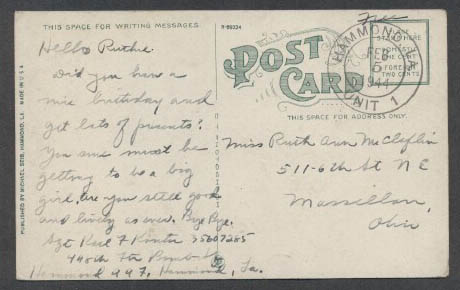 THIS SPACE FOR WRITING MESSAGES
R-69334
Free
Hello Ruthie
Did you have a
nice birthday and
get lots of presents?
You sure must be
getting to be a big
girl. Are you still good
and lively as ever. Bye Bye.
Sgt Karl F 35607285
448th Ftr Bomb
Hammond AAF, Hammond, La.
POST CARD
HAMMOND, LA
FEB
5
1944
UNIT 1
PLACE
STAMP HERE
DOMESTIC
ONE CENT
FOREIGN
TWO CENTS
THIS SPACE FOR ADDRESS
Miss Ruth Ann McClaflin
511-6th St N E
Massillon,
Ohio
PUBLISHED BY MICHAEL SEIB, HAMMOND, LA. MADE IN U.S.A.